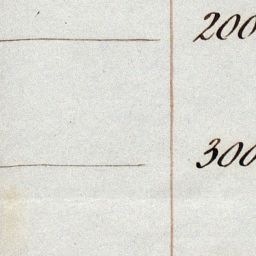 200
300